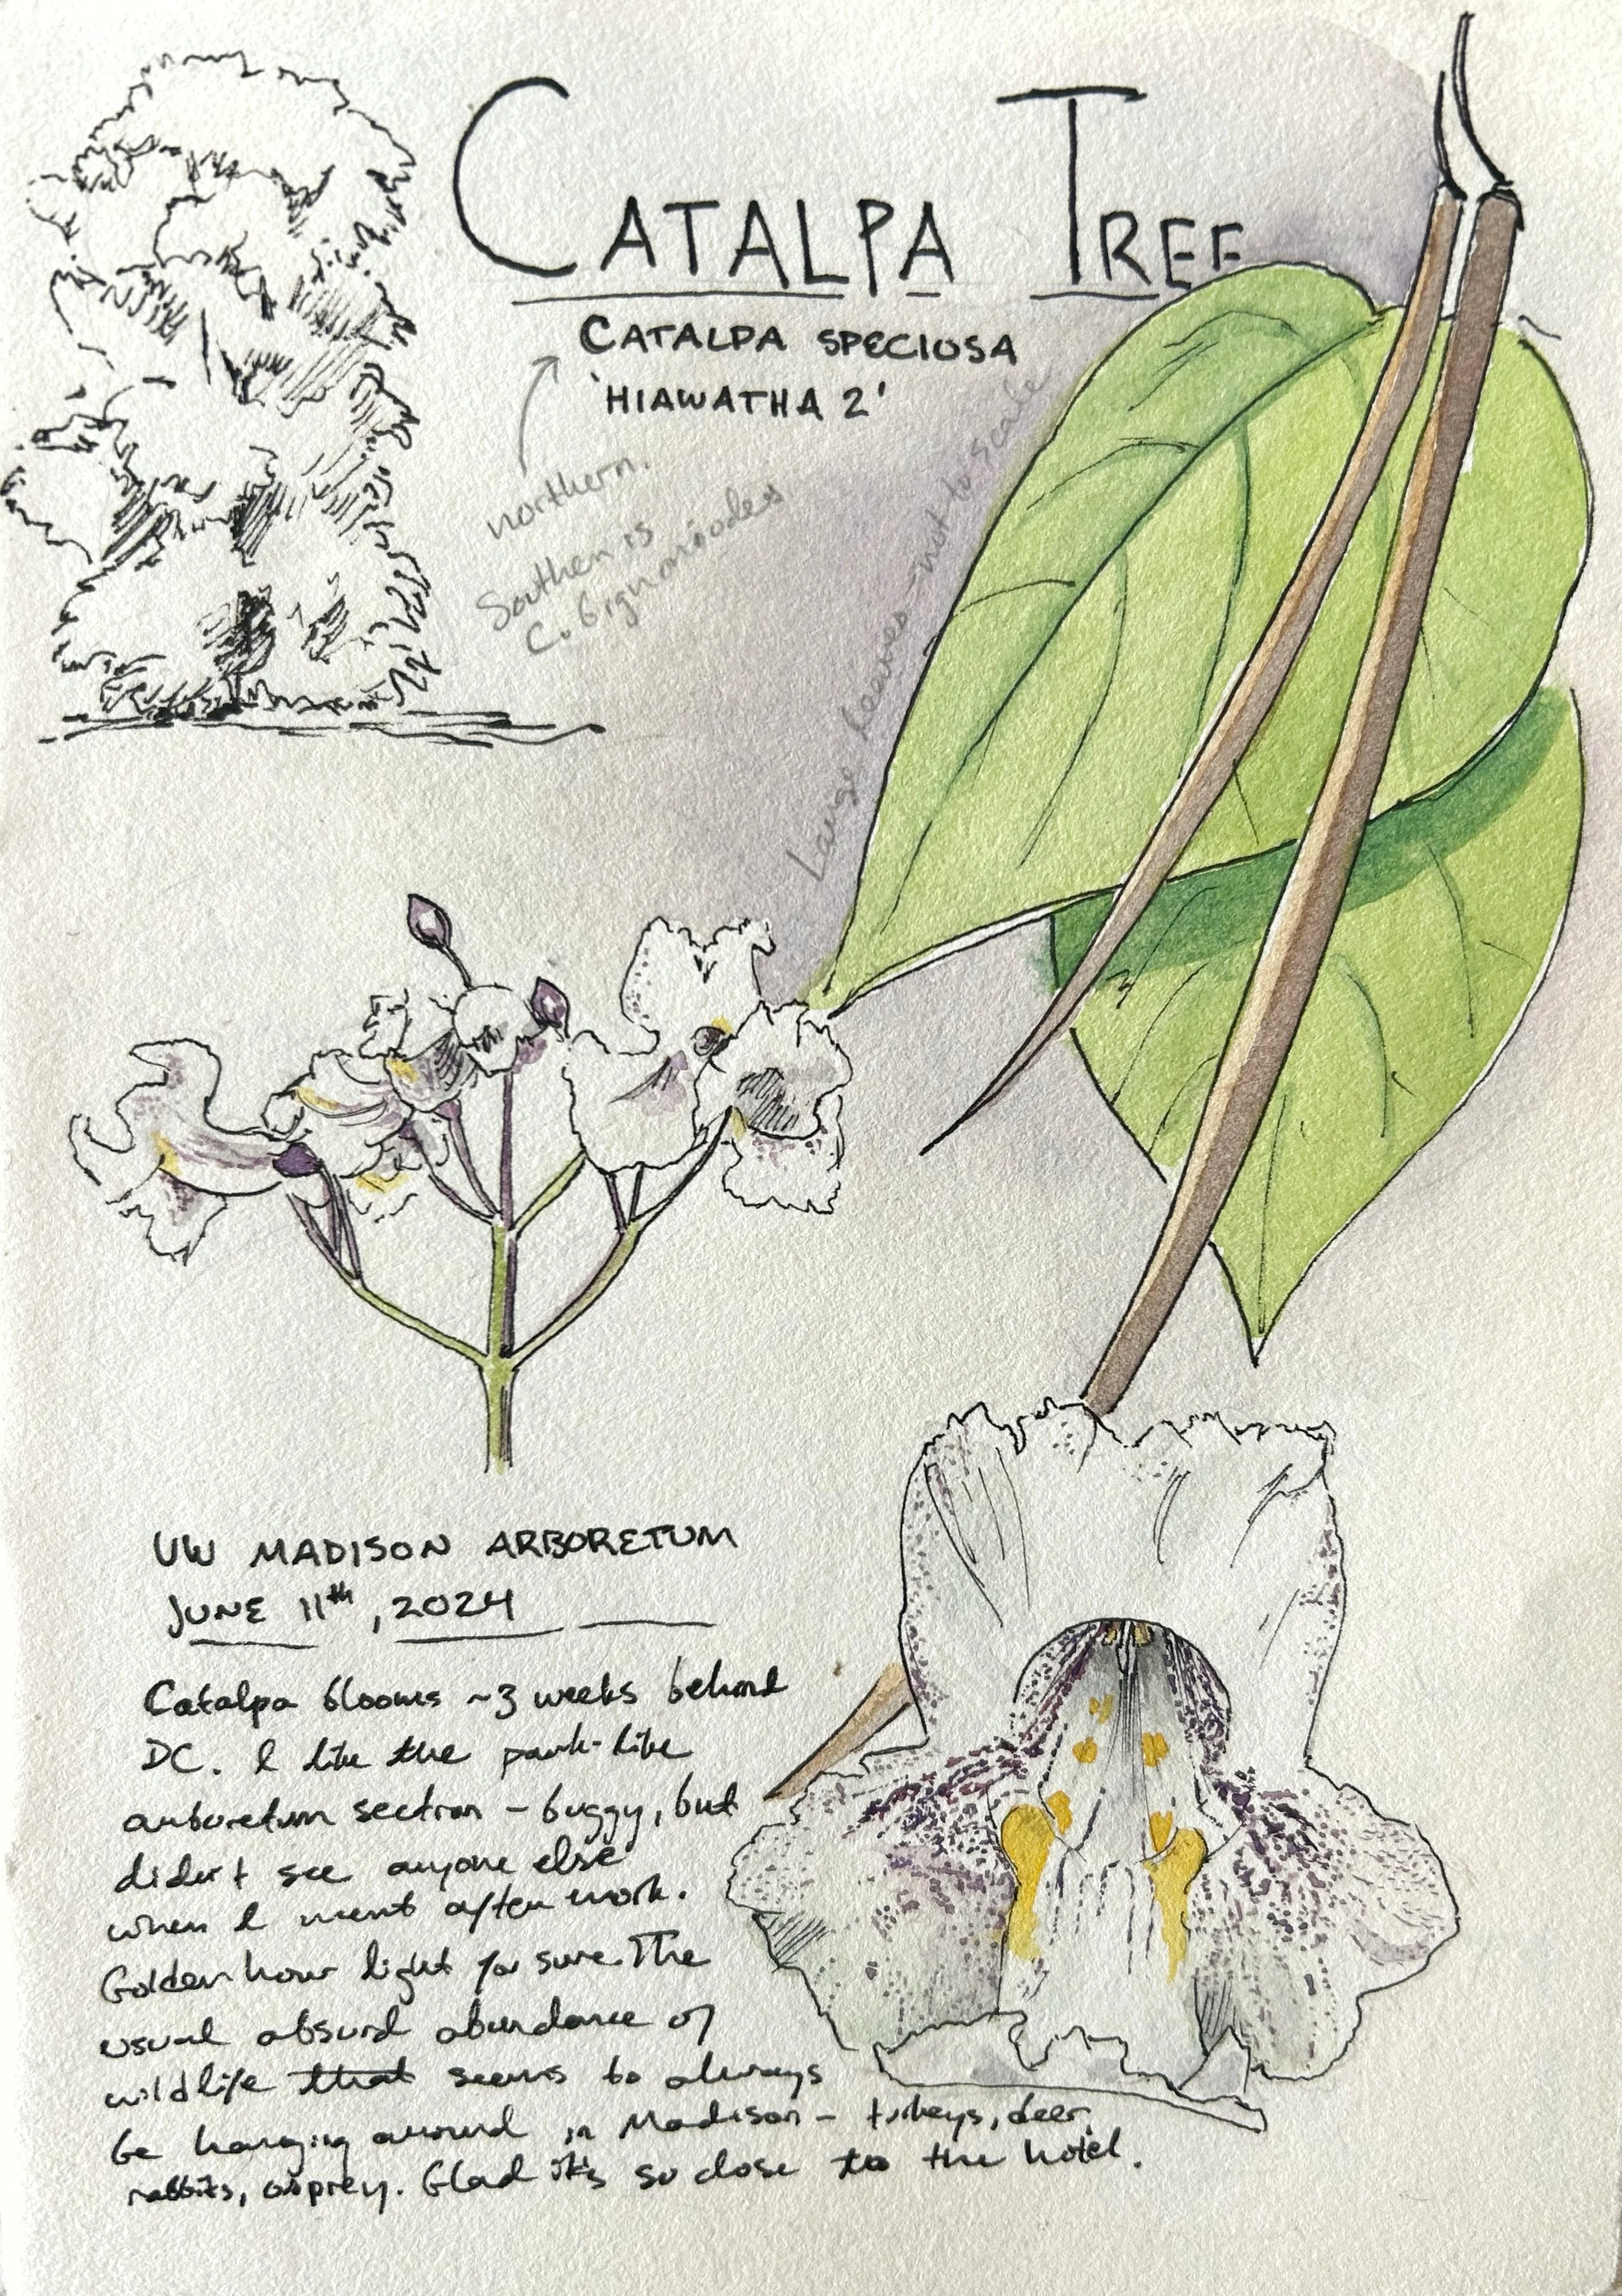 CATALPA TREE
CATALPA SPECIOSA
'HIAWATHA 2'
northern.
Southern is
C. bignoniodes
Large leaves - not to scale
UW MADISON ARBORETUM
JUNE 11th, 2024
Catalpa blooms ~3 weeks behind
DC. I like the park-like
arboretum section - buggy, but
didn't see anyone else
when I went after work.
Golden hour light for sure. The
usual absurd abundance of
wildlife that seems to always
be hanging around in Madison - turkeys, deer,
rabbits, osprey. Glad it's so close to the hotel.